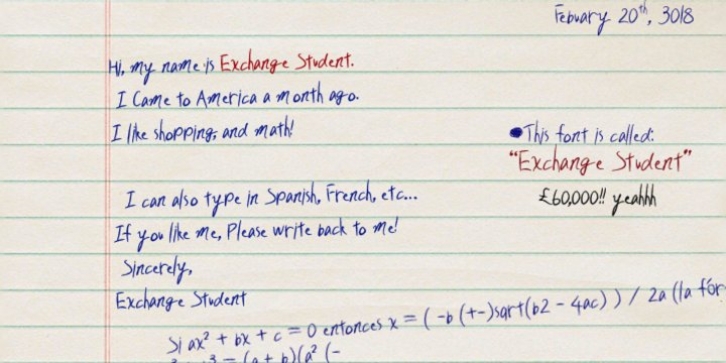 Febuary 20th, 3018
Hi, my name is Exchange Student.
I Came to America a month ago.
I like shopping, and math!
•This font is called:
"Exchange Student"
I can also type in Spanish, French, etc...
£60,000!! yeahhh
If you like me, Please write back to me!
Sincerely,
Exchange Student
Si ax² + bx + c = 0 entonces x = (-b (+-)sqrt(b2 - 4ac) ) / 2a (la for
= (a + b)(a² (-